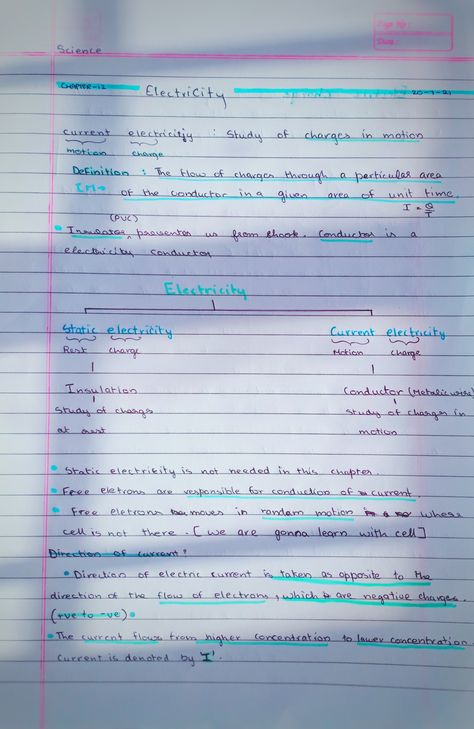 Page No:
Date:
Science
CHAPTER-12 Electricity 20-7-21
current electricity : Study of charges in motion
motion charge
Definition : The flow of charges through a particular area
of the conductor in a given area of unit time.
I = Q/T
(PVC)
• Insulator preventes us from shock. Conductor is a
electricity conductor
Electricity
Static electricity Current electricity
Rest charge Motion charge
Insulation Conductor (Metalic wire)
Study of charges study of charges in
at rest motion
• Static electricity is not needed in this chapter.
• Free eletrons are responsible for conduction of current.
• Free eletrons moves in random motion where
cell is not there. [we are gonna learn with cell]
Direction of current?
• Direction of electric current is taken as opposite to the
direction of the flow of electrons, which are negative charges.
(+ve to -ve)
• The current flows from higher concentration to lower concentration
Current is denoted by 'I'.